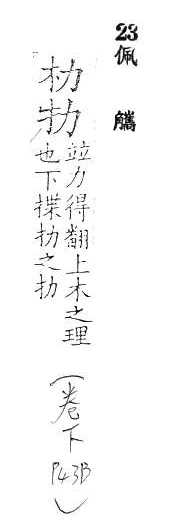 23佩觿
朸扐
竝力得翻上木之理
也下揲扐之扐
(卷下P43B)